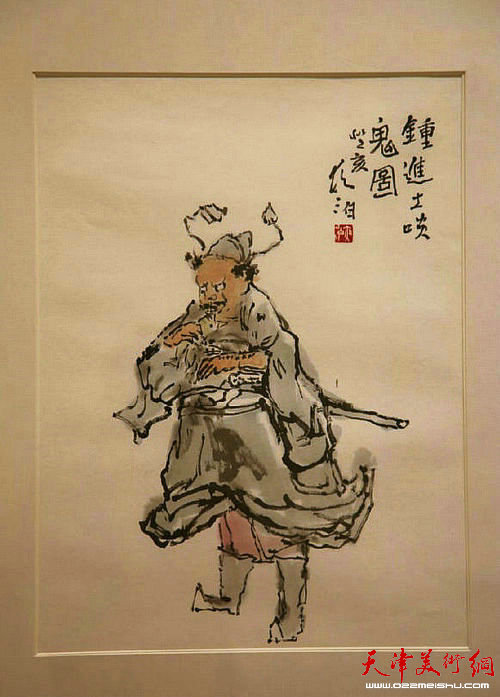 鍾進士啖
鬼圖
癸亥
天津美術網
www.022meishu.com